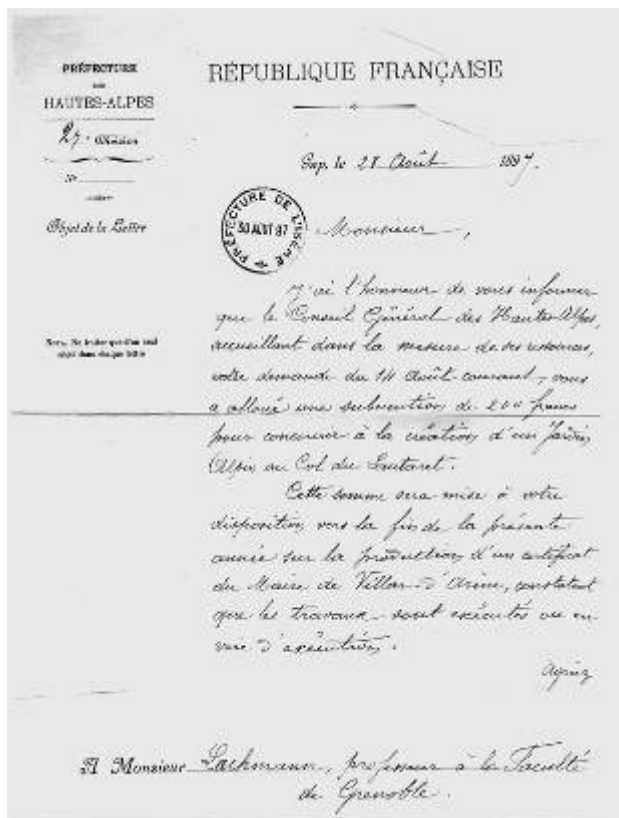 PRÉFECTURE
DES
HAUTES-ALPES
2e Division
No
Objet de la Lettre
Nota. Ne traiter que d'un seul
objet dans chaque lettre
RÉPUBLIQUE FRANÇAISE
Gap, le 28 Août 1897.
PRÉFECTURE DE L'ISÈRE
30 AOUT 97
Monsieur,
J'ai l'honneur de vous informer
que le Conseil Général des Hautes-Alpes,
accueillant dans la mesure de ses ressources,
votre demande du 14 Août courant, vous
a alloué une subvention de 200 francs
pour concourir à la création d'un Jardin
Alpin au Col du Lautaret.
Cette somme sera mise à votre
disposition vers la fin de la présente
année sur la production d'un certificat
du Maire de Villar-d'Arène, constatant
que les travaux sont exécutés ou en
voie d'exécution.
Agréez
A Monsieur Lachmann, professeur à la Faculté
de Grenoble.